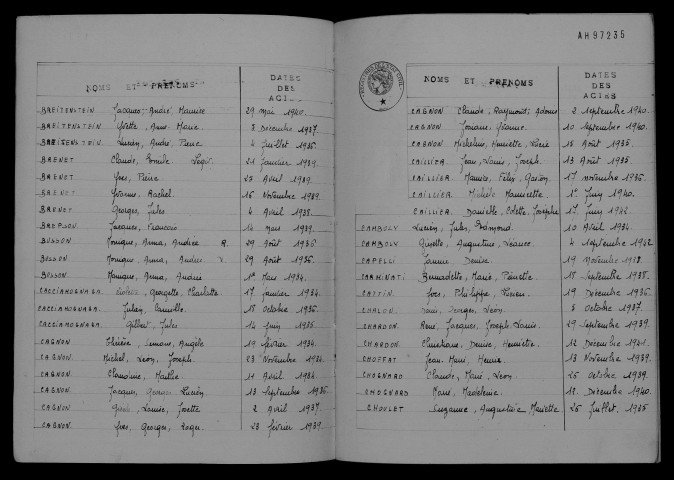 NOMS ET PRÉNOMS DATES DES ACTES
BREITENSTEIN Jacques, André, Maurice 29 mai 1940.
BREITENSTEIN Yvette, Anne, Marie. 3 Décembre 1937.
BREITENSTEIN Lucien, André, Pierre 4 Juillet 1936.
BRENET Claude, Léger. 21 janvier 1939.
BRENET Yves, Pierre 25 Avril 1939.
BRENET Yvonne, Rachel. 16 Novembre 1939.
BRENET Georges, Jules 4 Avril 1938.
Jacques, Francois 14 mars 1939.
BUSSON Monique, Anna, Andrée 29 Août 1936
BUSSON Monique, Anna, Andrée 29 Août 1936.
BUSSON Monique, Anna, Andrée 1er Mars 1934.
CACCIAMOGNAGA. Georgette, Charlotte 17 janvier 1934.
CACCIAMOGNAGA. Julien, Camille. 18 Octobre 1936.
CACCIAMOGNAGA. Gilbert, Jules 14 Juin 1935.
CAGNON Simone, Angèle 19 février 1934.
CAGNON. Michel, Léon, Joseph. 23 Novembre 1934.
CAGNON. Marthe 11 Avril 1934.
CAGNON. Jacques, Georges, Lucien 13 Septembre 1936.
CAGNON. Louise, Josette 2 Avril 1937
CAGNON. Yves, Georges, Roger 23 février 1939.
AH97235
NOMS ET PRENOMS DATES DES ACTES
CAGNON Claude, Raymond, 2 Septembre 1940.
CAGNON Josiane, 10 Septembre 1940.
CAGNON Micheline, Henriette, Lucie 15 Août 1935.
CAILLIER Jean, Louis, Joseph. 13 Août 1935.
CAILLIER. Maurice, Félix, Gaston. 17 novembre 1936.
CAILLIER. Michèle Mauricette. 1er Juin 1940.
CAILLIER Danielle, Colette, Josèphe 17 Juin 1942.
CAMBOLY Lucien, Jules, Edmond. 10 Avril 1934.
CAMBOLY Ginette, Augustine, Léance. 4 Septembre 1942
CAPELLI Jeanne, Denise. 19 Novembre 1938.
CARMINATI Bernadette, Marie, Pierrette 18 Septembre 1938.
CATTIN. Yves, Philippe, Lucien. 19 Décembre 1936.
CHALON. Louis, Georges, Léon. 5 Octobre 1937.
CHARDON Rene, Jacques, Joseph, Louis. 29 Septembre 1939.
CHARDON. Christiane, Denise, Henriette. 12 Décembre 1941.
CHOFFAT Jean, Marie, Henri 13 Novembre 1939.
CHOGNARD Claude, Marie, Léon. 25 Octobre 1939.
CHOGNARD Marie, Madeleine. 12 Décembre 1940.
CHOULET Suzanne, Augustine, Mariette 25 Juillet 1935